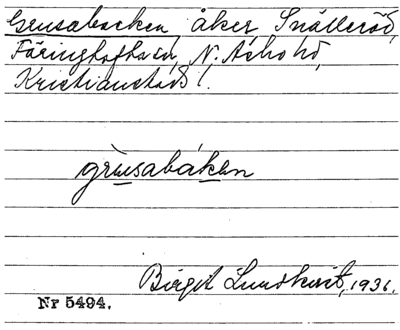 Grusabacken, åker Snälleröd,
Färingtofta sn, N. Åsbo hd,
Kristianstads l.
grùsabáken
Birgit Lundkvist, 1936.
Nr 5494.